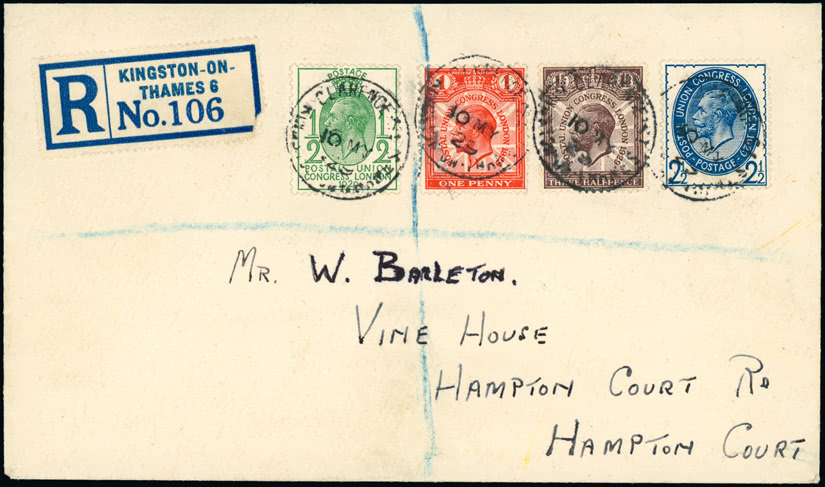 R KINGSTON-ON-
THAMES 6
No. 106
POSTAGE
1/2
POSTAL UNION
CONGRESS LONDON
1929
1 1
POSTAL UNION CONGRESS LONDON 1929
ONE PENNY
1½ 1½
POSTAL UNION CONGRESS LONDON 1929
THREE HALFPENCE
POSTAL UNION CONGRESS LONDON 1929
POSTAGE
2½ 2½
CLARENCE
10 MY
10 MY
10 MY
MR. W. BARLETON.
VINE HOUSE
HAMPTON COURT RD
HAMPTON COURT